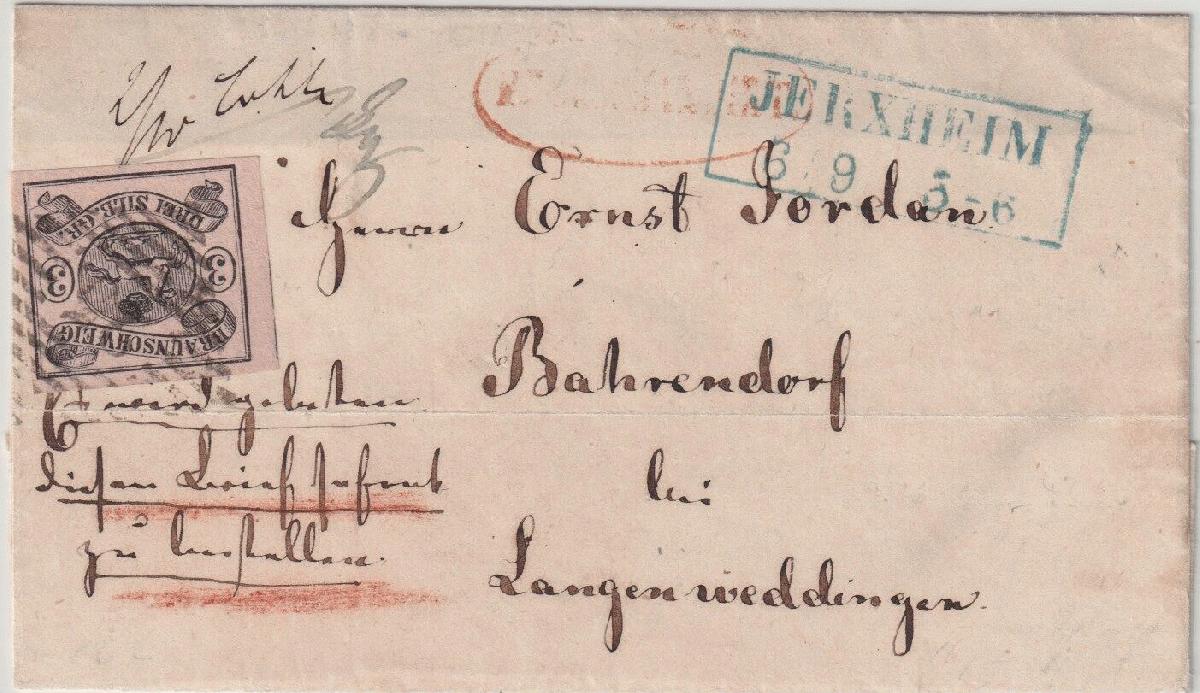 JERXHEIM
6 9 5-6
DREI SILB.GR.
3 3
BRAUNSCHWEIG
Herrn Ernst Jordan
Bahrendorf
bei
Langenweddingen.
Es wird gebeten
diesen Brief sofort
zu bestellen.